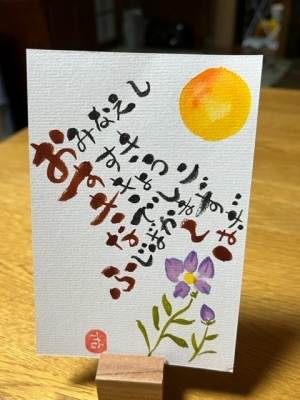 おみなえし
すすき
ききょう
なでしこ
ふじばかま
くず
はぎ